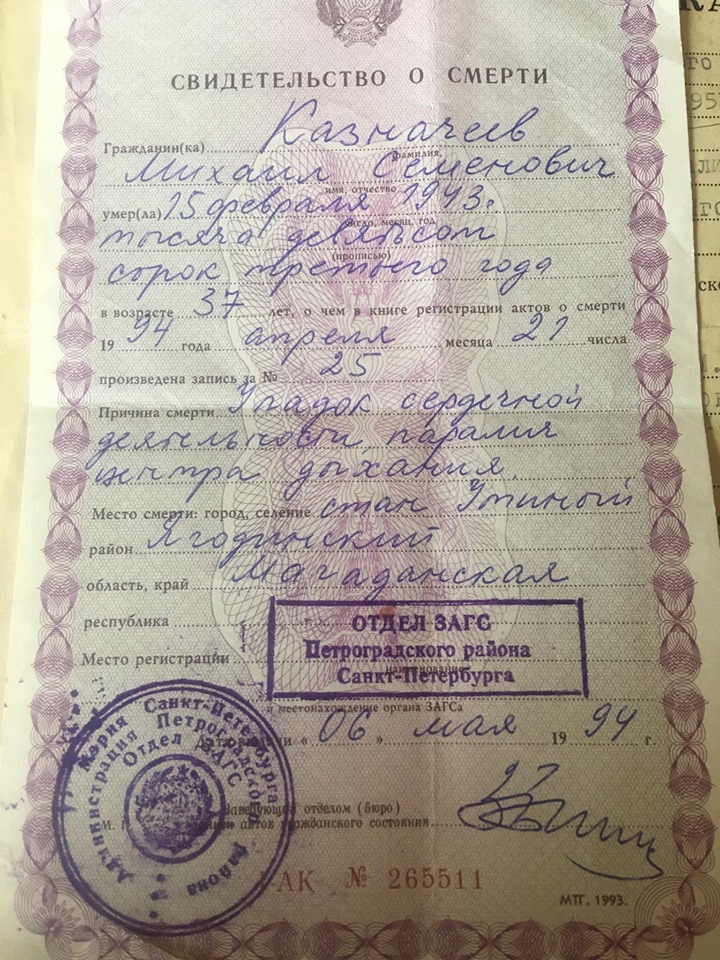 СВИДЕТЕЛЬСТВО О СМЕРТИ
Гражданин(ка) Казначеев
фамилия,
Михаил Семенович
имя, отчество
умер(ла) 15 февраля 1943г.
число, месяц, год
тысяча девятьсот
(прописью)
сорок третьего года
в возрасте 37 лет, о чем в книге регистрации актов о смерти
19 94 года апреля месяца 21 числа
произведена запись за № 25
Причина смерти Упадок сердечной
деятельности, паралич
центра дыхания
Место смерти: город, селение стан Утиный
район Ягодинский
область, край Магаданская
республика
Место регистрации
ОТДЕЛ ЗАГС
Петроградского района
Санкт-Петербурга
наименование
и местонахождение органа ЗАГСа
« 06 » мая 19 94 г.
Мэрия Санкт-Петербурга
Администрация Петроградского района
Отдел ЗАГС
Заведующий отделом (бюро)
М. актов гражданского состояния
АК № 265511
МТГ. 1993.